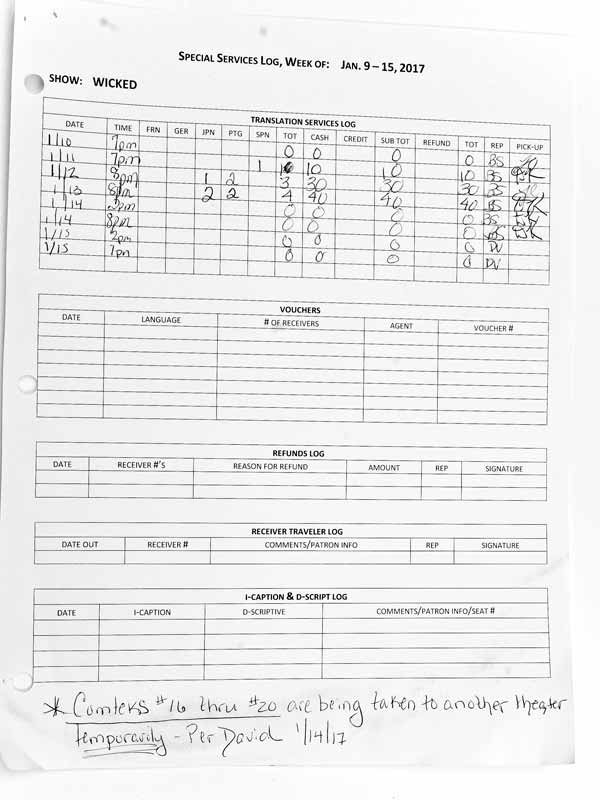 SPECIAL SERVICES LOG, WEEK OF: JAN. 9 – 15, 2017
SHOW: WICKED
TRANSLATION SERVICES LOG
DATE TIME FRN GER JPN PTG SPN TOT CASH CREDIT SUB TOT REFUND TOT REP PICK-UP
1/10 7pm 0 0 0 0 BS
1/11 7pm 1 10 10 10 BS
1/12 8pm 1 2 3 30 30 30 BS
1/13 8pm 2 2 4 40 40 40 BS
1/14 2pm 0 0 0 0 BS
1/14 8pm 0 0 0 0 BS
1/15 2pm 0 0 0 0 DV
1/15 7pm 0 0 0 0 DV
VOUCHERS
DATE LANGUAGE # OF RECEIVERS AGENT VOUCHER #
REFUNDS LOG
DATE RECEIVER #'S REASON FOR REFUND AMOUNT REP SIGNATURE
RECEIVER TRAVELER LOG
DATE OUT RECEIVER # COMMENTS/PATRON INFO REP SIGNATURE
I-CAPTION & D-SCRIPT LOG
DATE I-CAPTION D-SCRIPTIVE COMMENTS/PATRON INFO/SEAT #
* Comteks #16 thru #20 are being taken to another theater
Temporarily - Per David 1/14/17